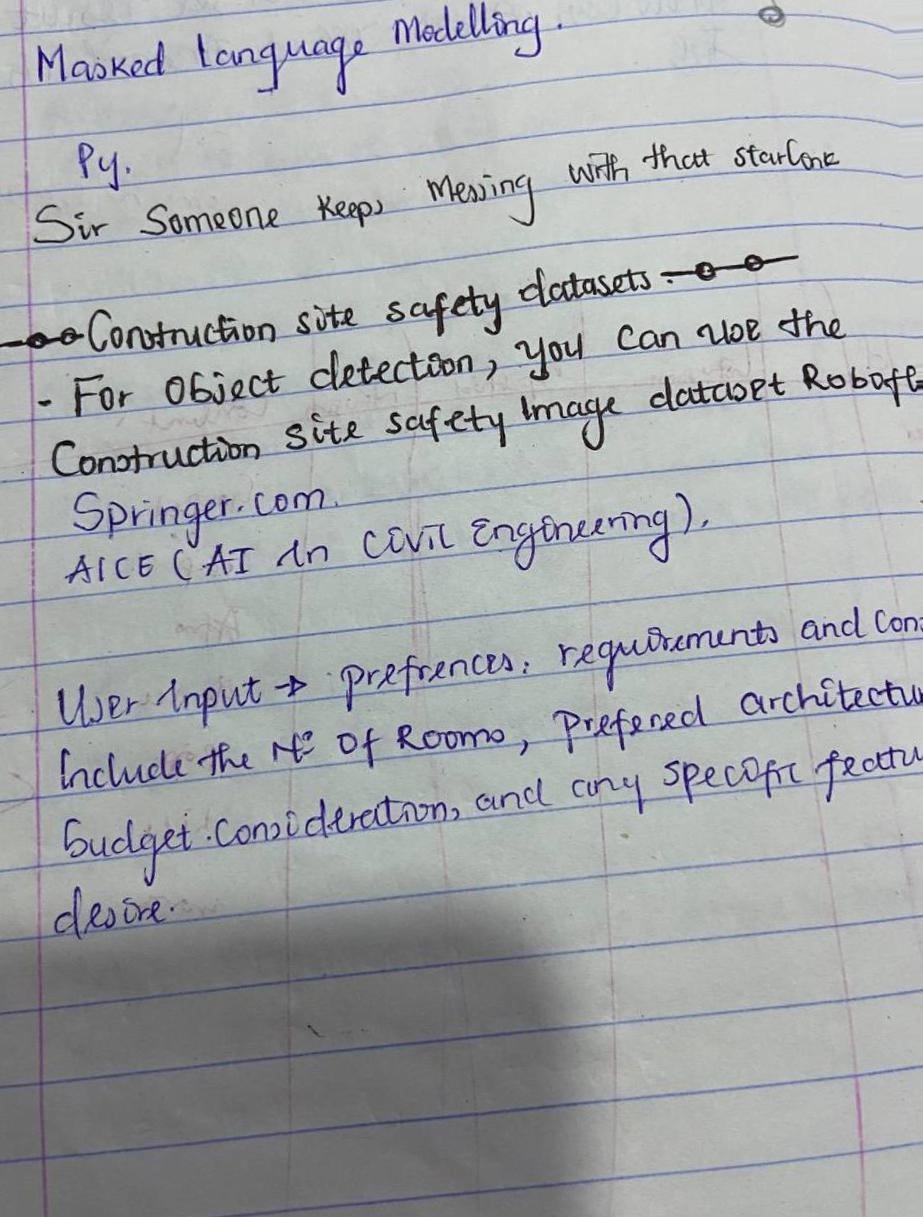 Masked Language Modelling.
Py.
Sir Someone Keeps Messing with that starlink
Construction site safety datasets.
- For Object detection, you can use the
Construction site safety Image dataset Robofl
Springer.com.
AICE (AI In Civil Engineering).
User Input → prefrences, requirements and Con
Include the Nº Of Rooms, Prefered architectu
budget consideration, and any specific featu
desire.